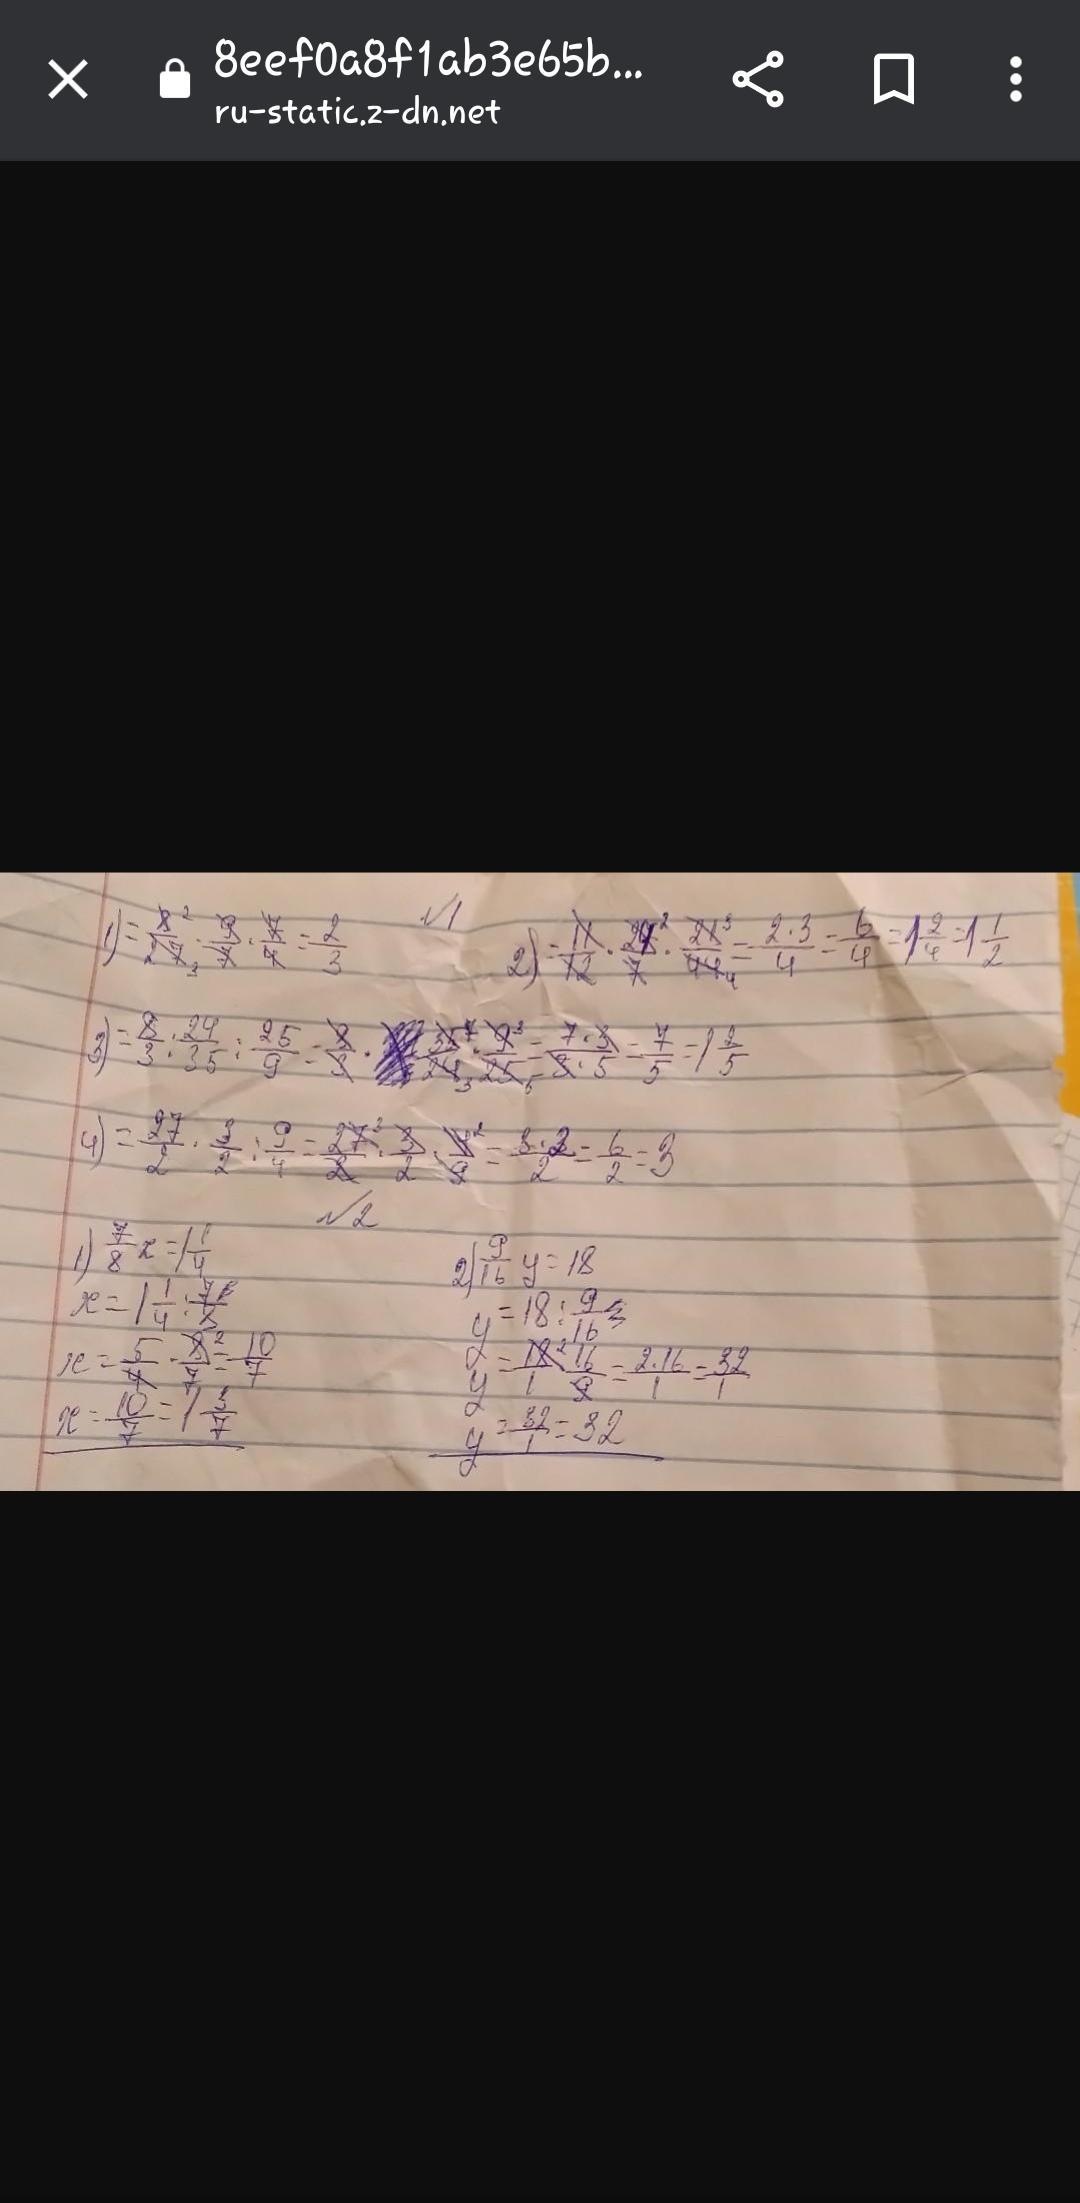 8eef0a8f1ab3e65b...
ru-static.z-dn.net
№1
1) = 8/27 · 9/7 · 7/4 = 2/3
2) = 11/12 · 24/7 · 21/44 = 2·3/4 = 6/4 = 1 2/4 = 1 1/2
3) = 8/3 : 24/35 : 25/9 = 8/3 · 35/24 · 9/25 = 7·3/3·5 = 7/5 = 1 2/5
4) = 27/2 · 3/2 : 9/4 = 27/2 · 3/2 · 4/9 = 3·2/2 = 6/2 = 3
№2
1) 7/8 x = 1 1/4
x = 1 1/4 : 7/8
x = 5/4 · 8/7 = 10/7
x = 10/7 = 1 3/7
2) 9/16 y = 18
y = 18 : 9/16
y = 18/1 · 16/9 = 2·16/1 = 32/1
y = 32/1 = 32